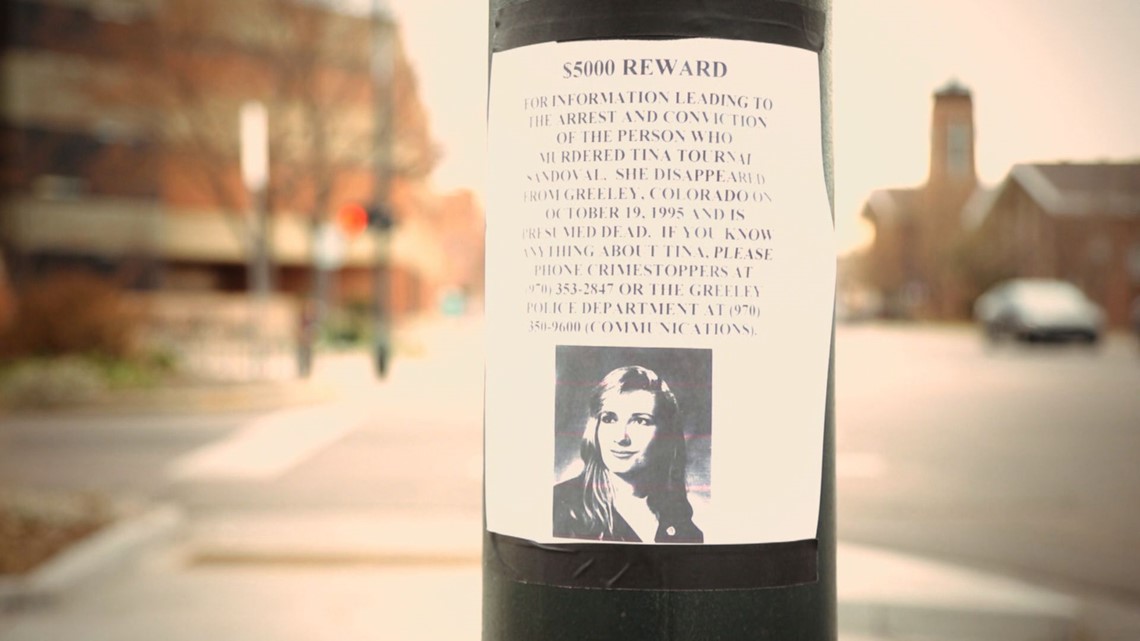 $5000 REWARD
FOR INFORMATION LEADING TO
THE ARREST AND CONVICTION
OF THE PERSON WHO
MURDERED TINA TOURNAI
SANDOVAL. SHE DISAPPEARED
FROM GREELEY, COLORADO ON
OCTOBER 19, 1995 AND IS
PRESUMED DEAD. IF YOU KNOW
ANYTHING ABOUT TINA, PLEASE
PHONE CRIMESTOPPERS AT
(970) 353-2847 OR THE GREELEY
POLICE DEPARTMENT AT (970)
350-9600 (COMMUNICATIONS).